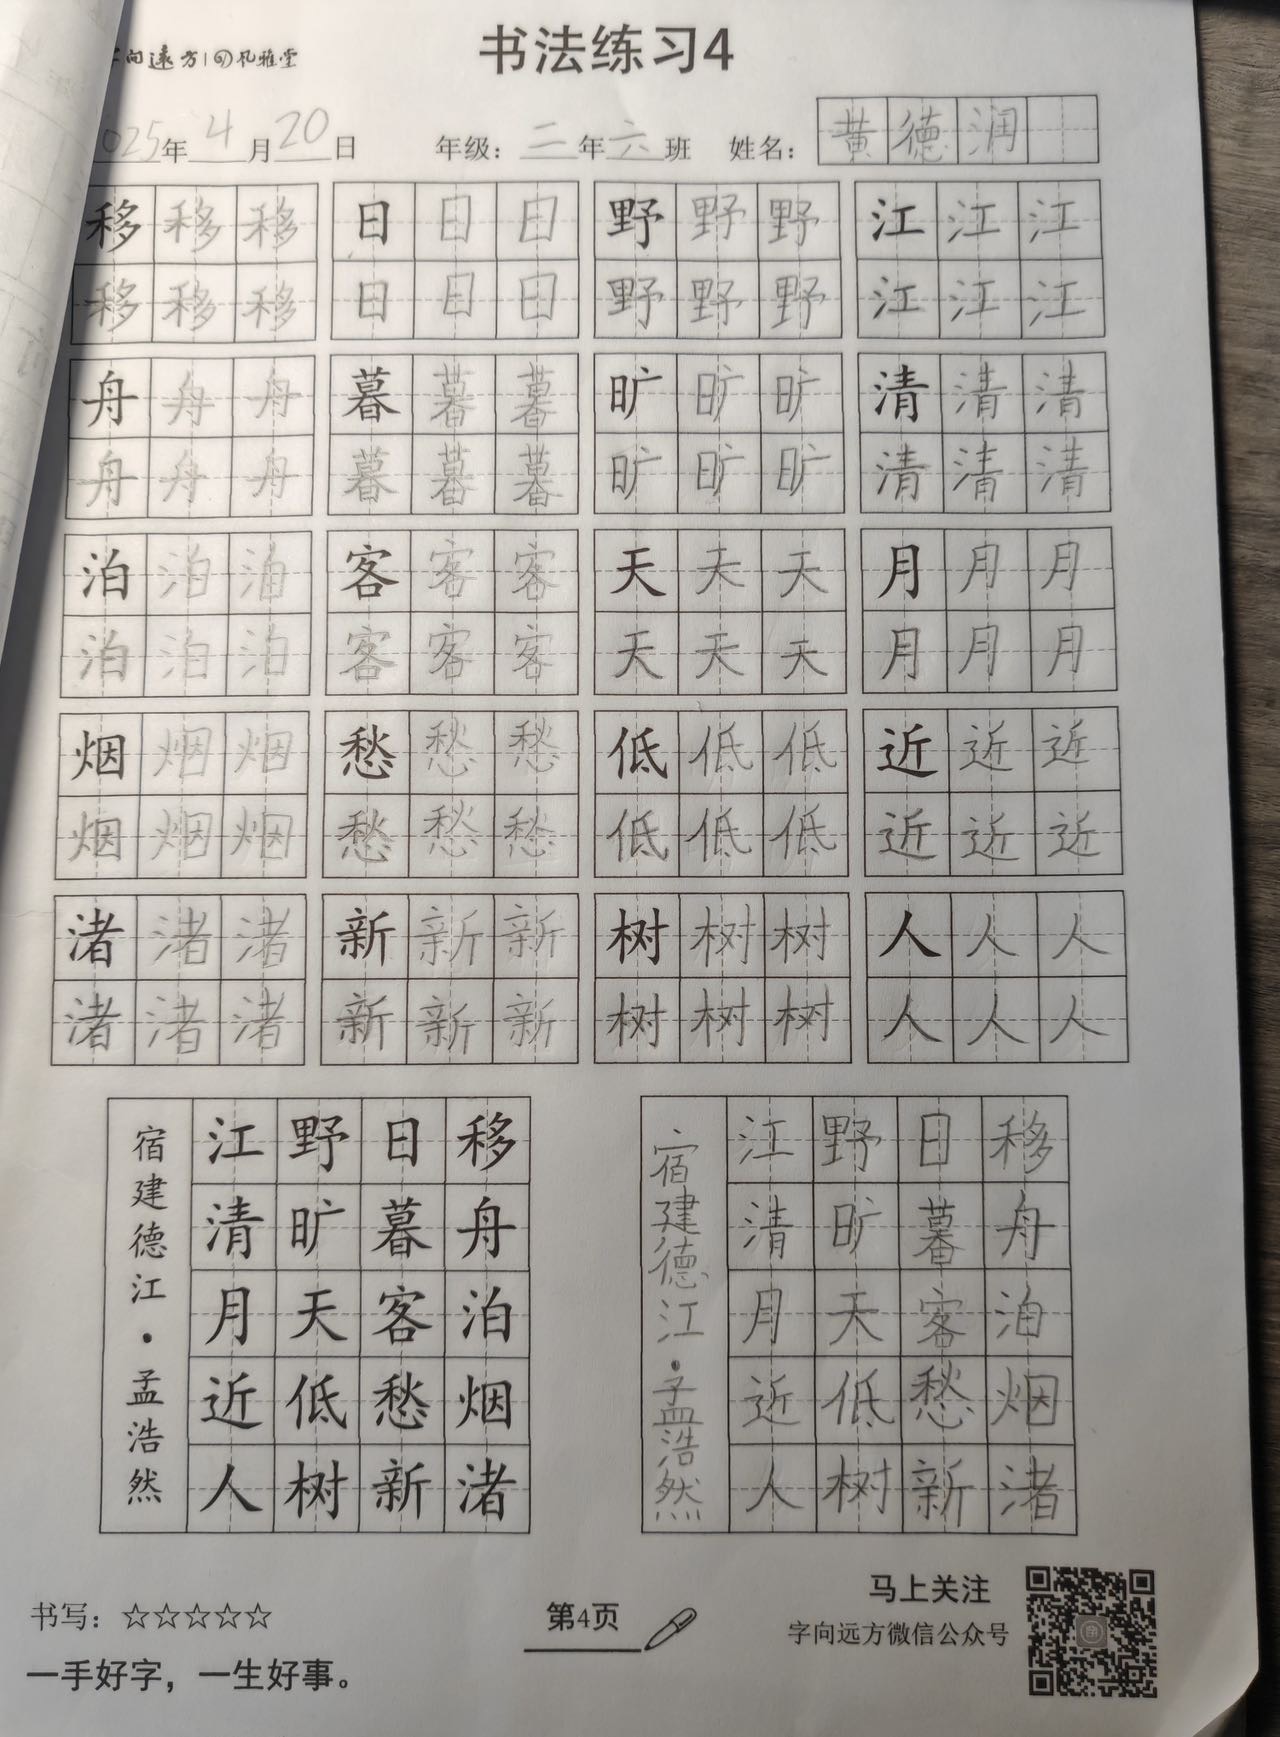 字向远方 风雅堂
书法练习4
2025年4月20日 年级：二年六班 姓名：黄德润
移移移 日日日 野野野 江江江
移移移 日日日 野野野 江江江
舟舟舟 暮暮暮 旷旷旷 清清清
舟舟舟 暮暮暮 旷旷旷 清清清
泊泊泊 客客客 天天天 月月月
泊泊泊 客客客 天天天 月月月
烟烟烟 愁愁愁 低低低 近近近
烟烟烟 愁愁愁 低低低 近近近
渚渚渚 新新新 树树树 人人人
渚渚渚 新新新 树树树 人人人
移舟泊烟渚
日暮客愁新
野旷天低树
江清月近人
宿建德江·孟浩然
移舟泊烟渚
日暮客愁新
野旷天低树
江清月近人
宿建德江·孟浩然
书写：☆☆☆☆☆
一手好字，一生好事。
第4页
马上关注
字向远方微信公众号